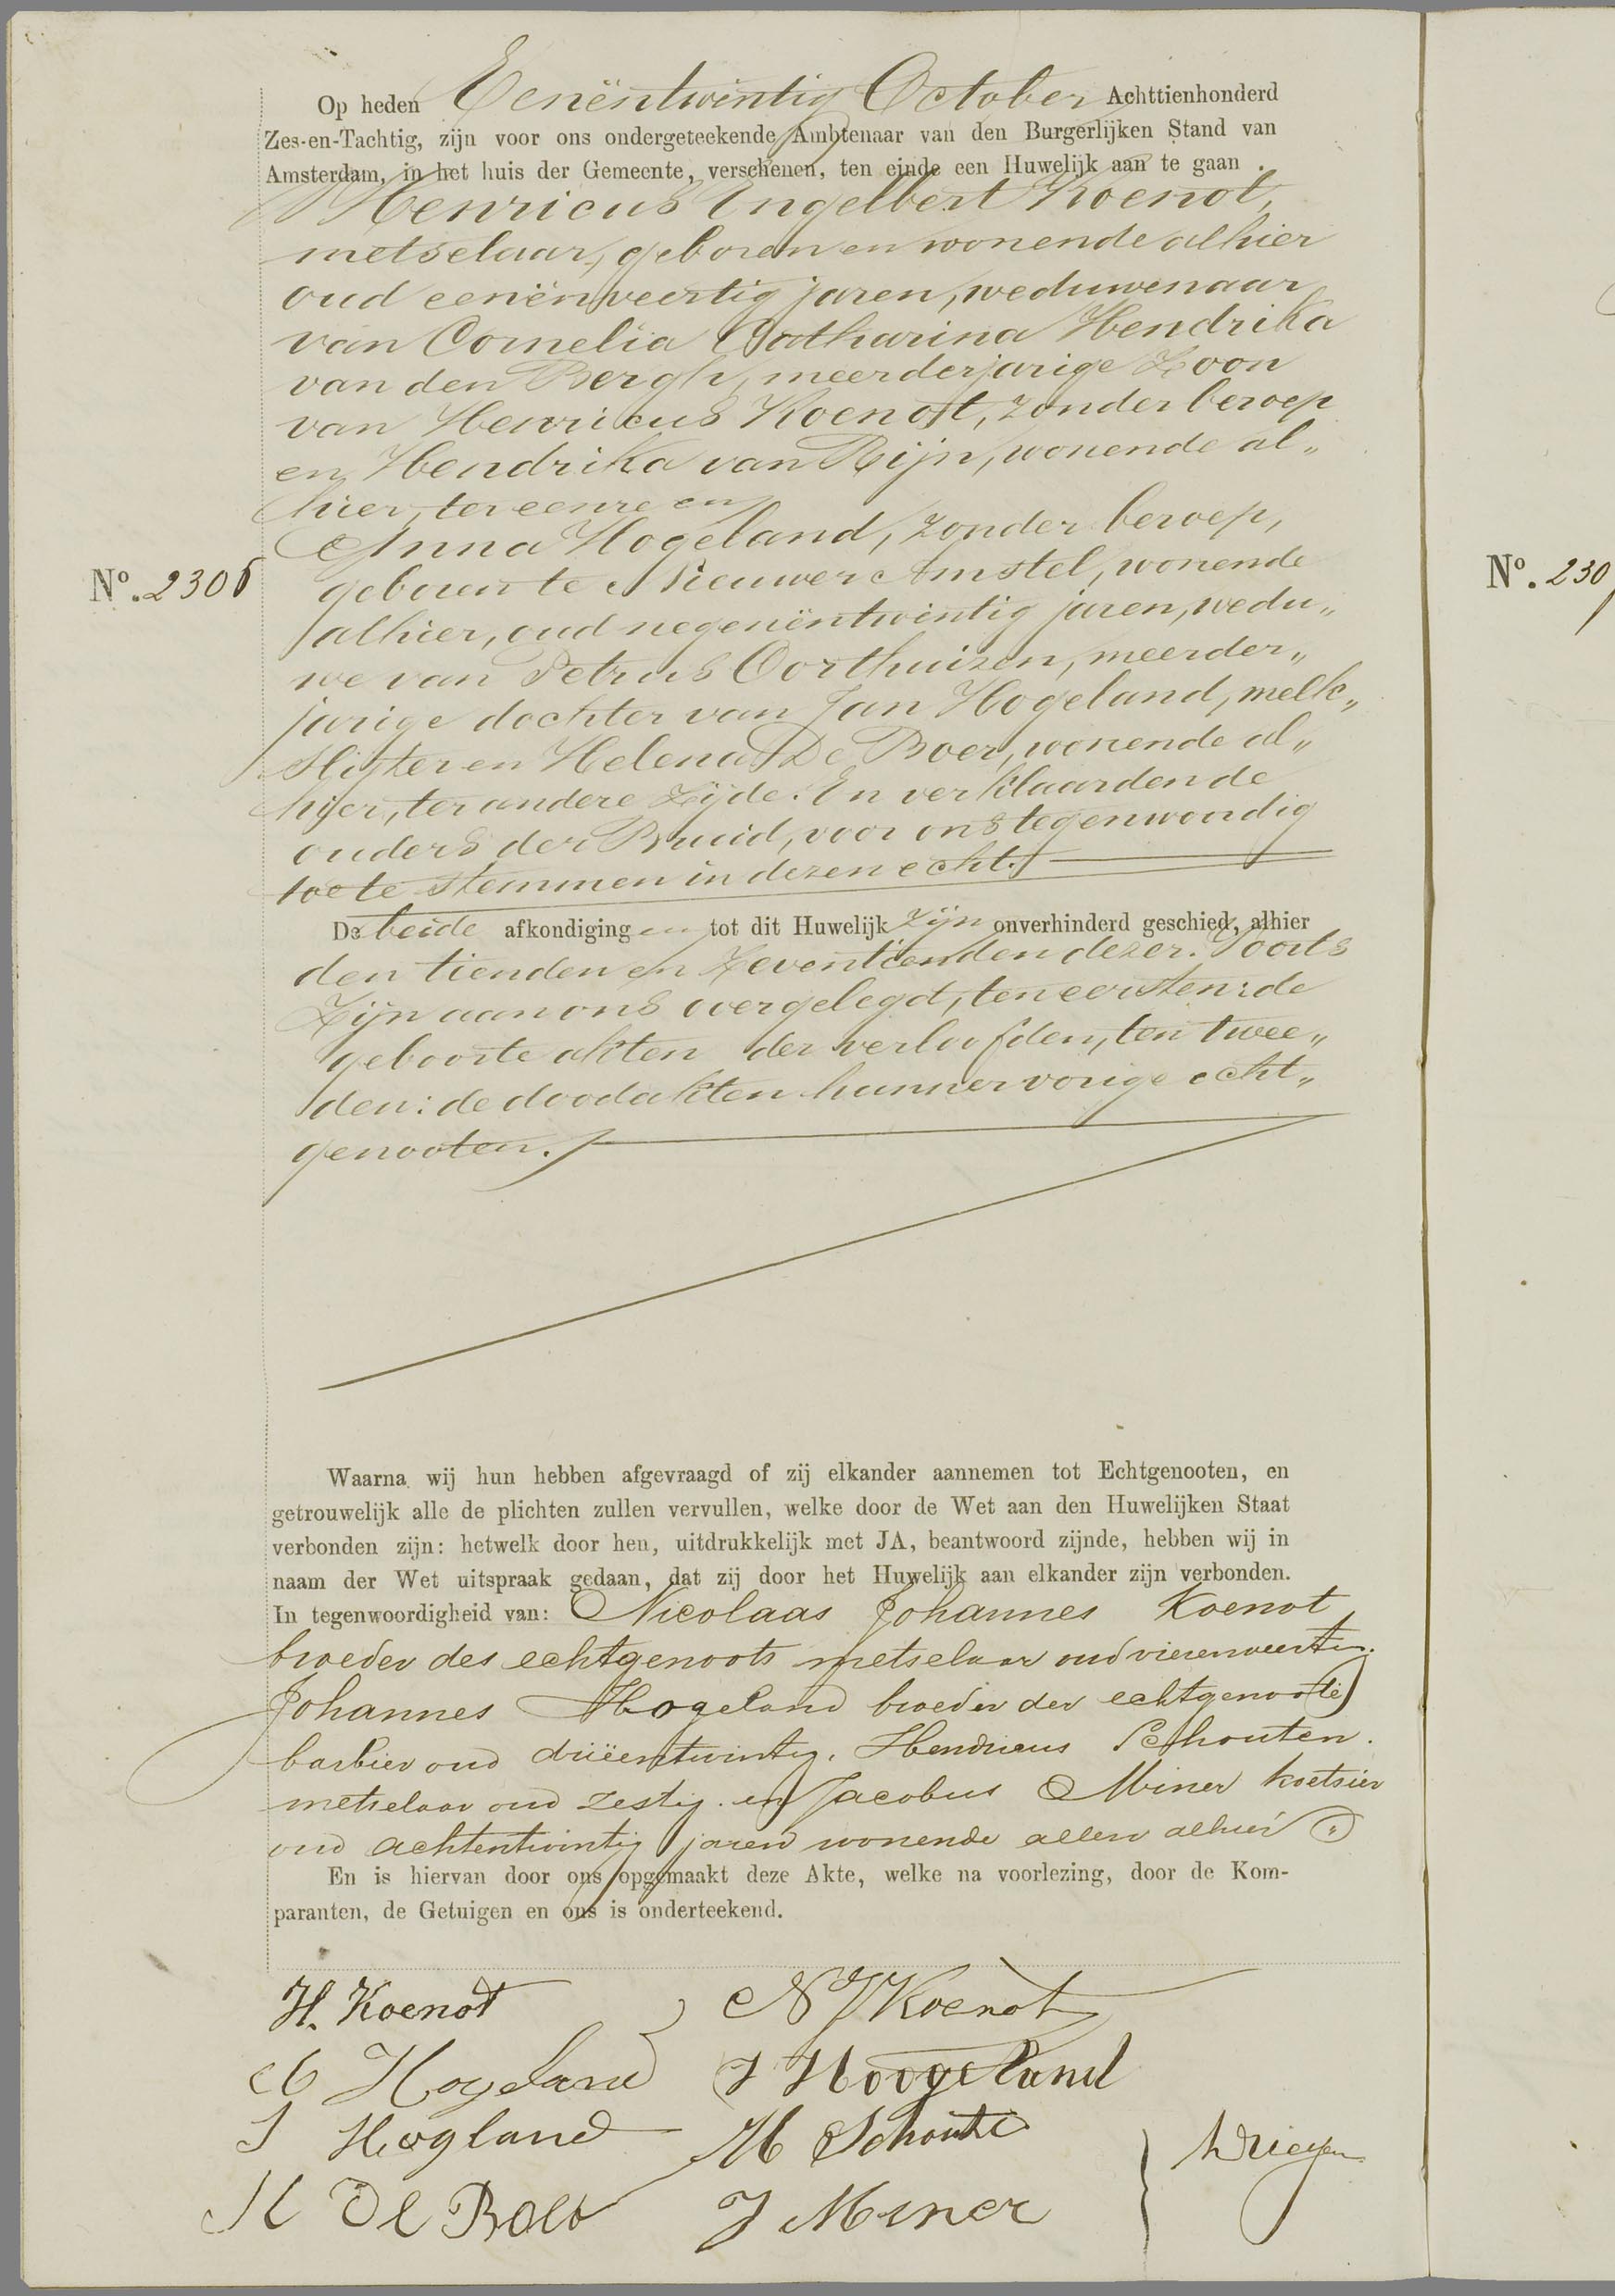 Op heden Eenëntwintig October Achttienhonderd
Zes-en-Tachtig, zijn voor ons ondergeteekende Ambtenaar van den Burgerlijken Stand van
Amsterdam, in het huis der Gemeente, verschenen, ten einde een Huwelijk aan te gaan.
Henricus Engelbert Koenot,
metselaar, geboren en wonende alhier
oud eenënveertig jaren, weduwenaar
van Cornelia Catharina Hendrika
van den Bergh, meerderjarige Zoon
van Henricus Koenot, zonder beroep
en Hendrika van Rijn, wonende al„
hier, ter eenre en
Anna Hogeland, zonder beroep,
No. 2306
geboren te Nieuwer Amstel, wonende
alhier, oud negenëntwintig jaren, wedu„
we van Petrus Oorthuizen, meerder„
jarige dochter van Jan Hogeland, melk„
slijter en Helena De Boer, wonende al„
hier, ter andere Zijde. En verklaarden de
ouders der Bruid, voor ons tegenwoordig
toe te stemmen in dezen echt.
De beide afkondigingen tot dit Huwelijk zijn onverhinderd geschied, alhier
den tienden en Zeventienden dezer. Voorts
Zijn aan ons overgelegd, ten eersten: de
geboorte akten der verloofden, ten twee„
den: de doodakten hunner vorige echt„
genooten.
Waarna wij hun hebben afgevraagd of zij elkander aannemen tot Echtgenooten, en
getrouwelijk alle de plichten zullen vervullen, welke door de Wet aan den Huwelijken Staat
verbonden zijn: hetwelk door hen, uitdrukkelijk met JA, beantwoord zijnde, hebben wij in
naam der Wet uitspraak gedaan, dat zij door het Huwelijk aan elkander zijn verbonden.
In tegenwoordigheid van: Nicolaas Johannes Koenot
broeder des echtgenoots metselaar oud vierenveertig.
Johannes Hogeland broeder der echtgenoote
barbier oud drieëntwintig, Hendricus Schouten.
metselaar oud zestig. en Jacobus Miner koetsier
oud achtentwintig jaren wonende allen alhier
En is hiervan door ons opgemaakt deze Akte, welke na voorlezing, door de Kom-
paranten, de Getuigen en ons is onderteekend.
H. Koenot
N J Koenot
A Hogeland
J Hoogeland
J Hogland
H Schoute
H De Boer
J Miner
No. 230